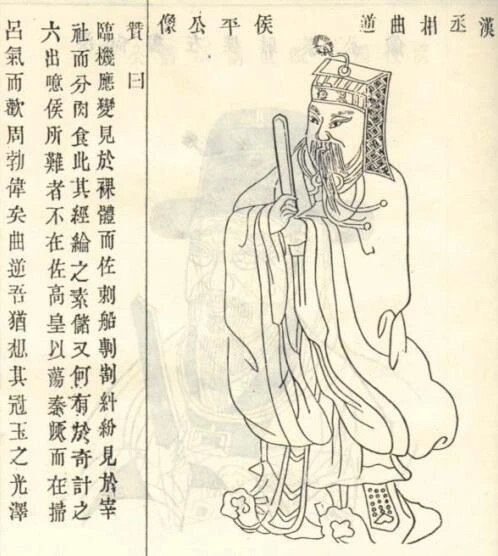 漢丞相曲逆侯平公像
贊曰
臨機應變見於裸體而佐刺船剸割糾紛見於宰
社而分肉食此其經綸之素儲又何有於奇計之
六出噫侯所難者不在佐高皇以蕩秦而在掃
呂氣而周勃偉矣曲逆吾猶想其冠玉之光澤